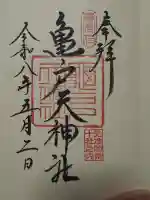 奉拝
亀戸天神社
令和八年五月二日